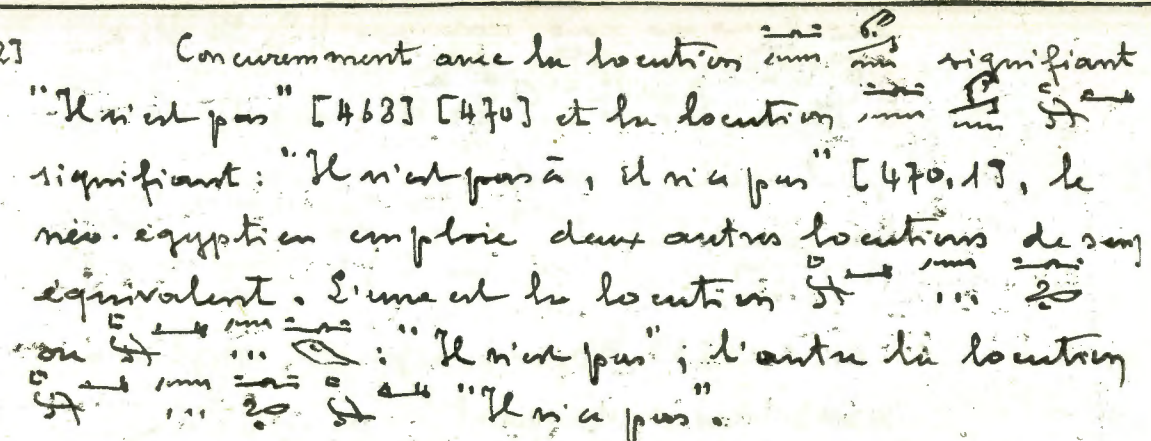 2] Concurremment avec la locution signifiant
"Il n'est pas" [463] [470] et la locution
signifiant: "Il n'est pas à, il n'a pas" [470,1], le
néo-égyptien emploie deux autres locutions de sens
équivalent. L'une est la locution
ou : "Il n'est pas"; l'autre la locution
"Il n'a pas".